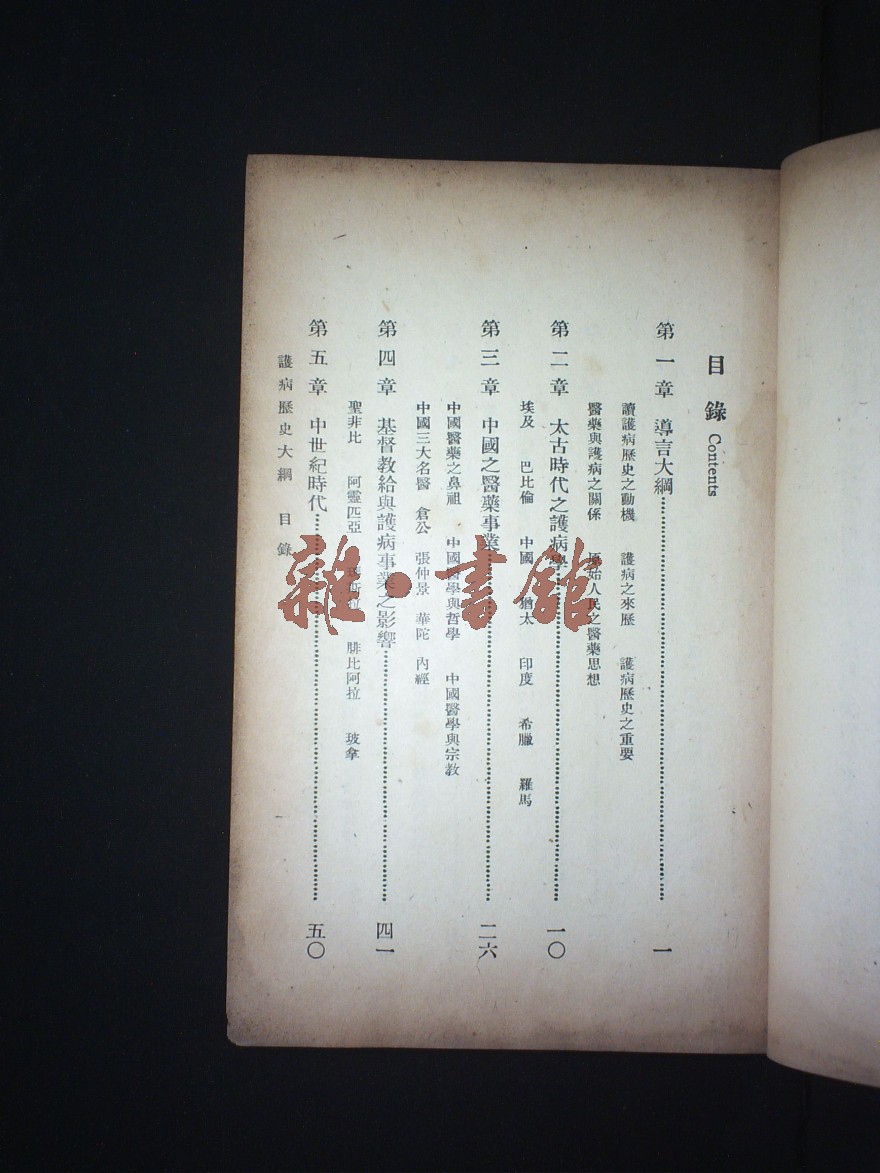 目錄 Contents
第一章 導言大綱……一
讀護病歷史之動機 護病之來歷 護病歷史之重要
醫藥與護病之關係 原始人民之醫藥思想
第二章 太古時代之護病學……一〇
埃及 巴比倫 中國 猶太 印度 希臘 羅馬
第三章 中國之醫藥事業……二六
中國醫藥之鼻祖 中國醫學與哲學 中國醫學與宗教
中國三大名醫 倉公 張仲景 華陀 內經
第四章 基督教給與護病事業之影響……四一
聖非比 阿靈匹亞 瑪斯拉 腓比阿拉 玻拿
第五章 中世紀時代……五〇
護病歷史大綱 目錄
雜·書館